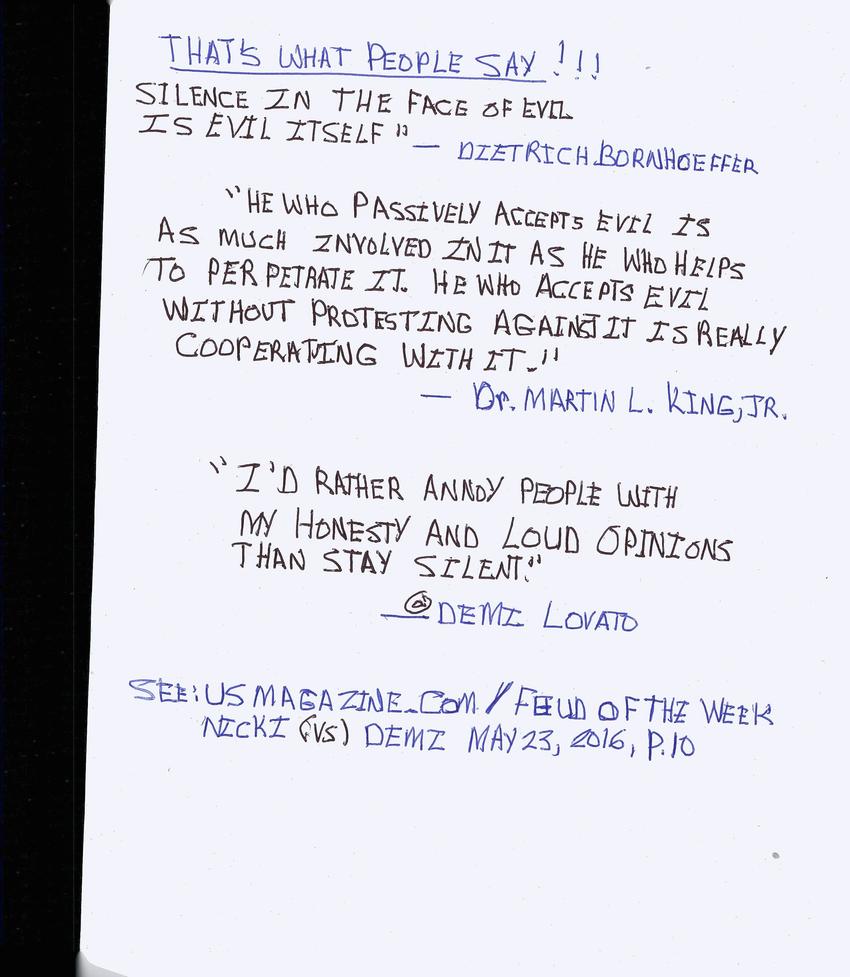 THAT'S WHAT PEOPLE SAY!!!
SILENCE IN THE FACE OF EVIL
IS EVIL ITSELF" — DIETRICH BORNHOEFFER
"HE WHO PASSIVELY ACCEPTS EVIL IS
AS MUCH INVOLVED IN IT AS HE WHO HELPS
TO PERPETRATE IT. HE WHO ACCEPTS EVIL
WITHOUT PROTESTING AGAINST IT IS REALLY
COOPERATING WITH IT."
— Dr. MARTIN L. KING, JR.
"I'D RATHER ANNOY PEOPLE WITH
MY HONESTY AND LOUD OPINIONS
THAN STAY SILENT."
— @DEMI LOVATO
SEE: US MAGAZINE.COM/FEUD OF THE WEEK
NICKI (VS) DEMI MAY 23, 2016, P.10